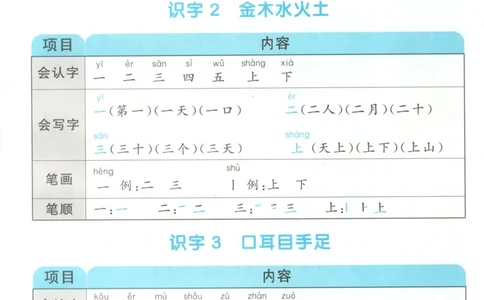 识字2 金木水火土
项目 内容
yī èr sān sì wǔ shàng xià
会认字 一 二 三 四 五 上 下
yī èr
一(第一)(一天)(一口) 二(二人)(二月)(二十)
会写字
sān shàng
三(三十)(三个)(三天) 上(天上)(上下)(上山)
héng shù
笔画 一 例:二 三 丨 例:上 下
笔顺 一:一 二:一 二 三:一 二 三 上:丨 卜 上
识字3 口耳目手足
项目 内容
kǒu ěr mù shǒu zú zhàn zuò